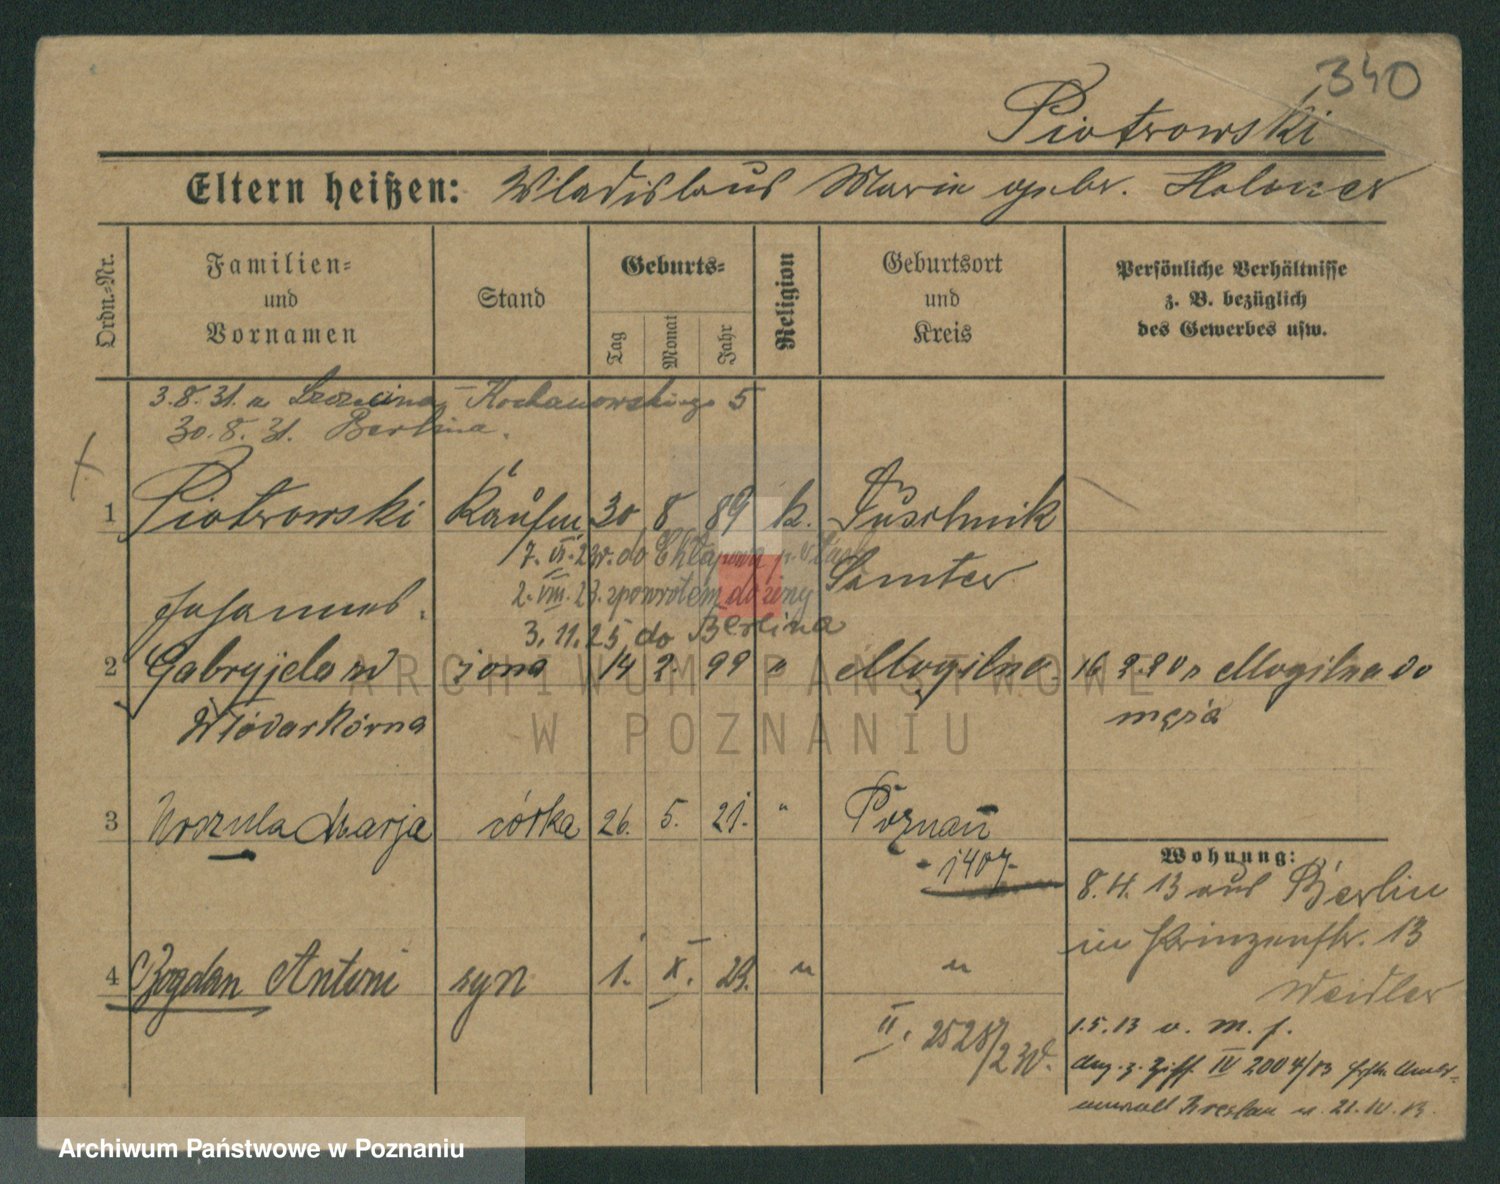 340
Piotrowski
Eltern heißen: Wladislaus Marie gebr.
Ordn.-Nr.
Familien-
und
Vornamen
Stand
Geburts-
Tag
Monat
Jahr
Religion
Geburtsort
und
Kreis
Persönliche Verhältnisse
z. B. bezüglich
des Gewerbes usw.
3.8.31. z Szczecina - Kochanowskiego 5
30.8.31. Berlina.
1 Piotrowski Kaufm 30 8 89 k.
7. VI. 23r. do
Samter
2. VIII. 23. zpowrotem do żony
Johannes.
3.11.25 do Berlina
2 Gabryjela żona 14 2. 99 " Mogilno. 16 9.20 z Mogilna do
męża
3 Urszula Marja córka 26. 5. 21. " Poznań
- 1407 -
Wohnung:
8.4.13 aus Berlin
in Prinzenstr. 13
Weidler
4 Bogdan Antoni syn 1. X. 23. " "
1.5.13 v. m. f.
II. 2528/23W.
z. Ziff. IV 2004/13
Breslau v. 21.IV.13.
ARCHIWUM PAŃSTWOWE
W POZNANIU
Archiwum Państwowe w Poznaniu